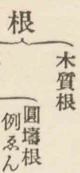 根
木質根
圓壔根
例ゑん